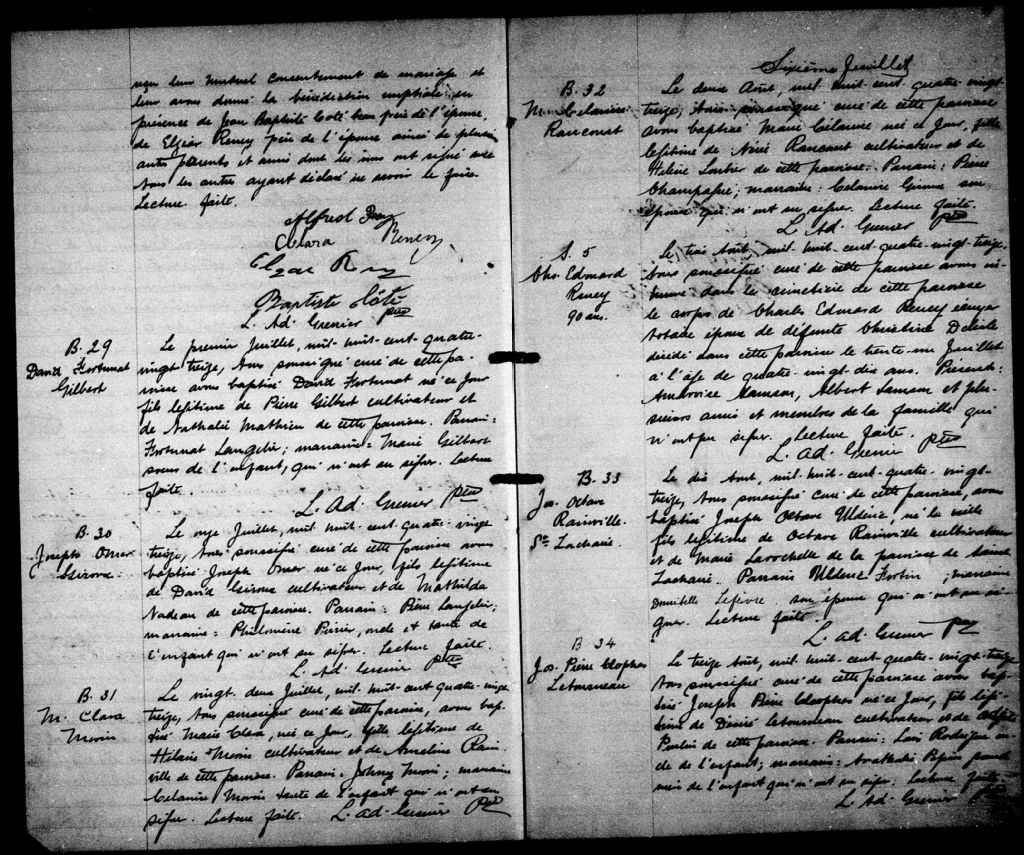 leur mutuel consentement de mariage et
leur avons donné la bénédiction nuptiale en
présence de Jean Baptiste Coté père de l'épouse,
de Elzéar Rency père de l'épouse ainsi de
autres parents et amis dont les uns ont signé avec
Nous les autres ayant déclaré ne savoir le faire
Lecture faite.
Alfred
Clara Rency
Elzear Rency
Baptiste Côté
L. Ad. Grenier Ptre
B. 29
David Fortunat
Gilbert
Le premier Juillet, mil-huit-cent-quatre-
vingt-treize, Nous soussigné curé de cette pa-
roisse avons baptisé David Fortunat né ce Jour
fils légitime de Pierre Gilbert cultivateur et
de Nathalie Mathieu de cette paroisse. Parrain:
Fortunat Langelier; marraine: Marie Gilbert
soeur de l'enfant, qui n'ont su signer. Lecture
faite.
L. Ad. Grenier Ptre
B. 30
Joseph Omer
Giroux
Le onze Juillet, mil huit-cent-quatre vingt
treize, Nous soussigné curé de cette paroisse avons
baptisé Joseph Omer né ce Jour, fils légitime
de David Giroux cultivateur et de Mathilda
Nadeau de cette paroisse. Parrain: Pierre Langelier;
marraine: Philomène Poirier, oncle et tante de
l'enfant qui n'ont su signer. Lecture faite.
L. Ad. Grenier Ptre
B. 31
M. Clara
Morin
Le vingt-deux Juillet, mil-huit-cent quatre-vingt
treize, Nous soussigné curé de cette paroisse, avons bap-
tisé Marie Clara, née ce Jour, fille légitime de
Hilaire Morin cultivateur et de Ameline Rain-
ville de cette paroisse. Parrain: Johnny Morin; marraine
Celanire Morin tante de l'enfant qui n'ont su
signer. Lecture faite. L. Ad. Grenier Ptre
Sixième Feuillet
B. 32
M. Celanire
Rancourt
Le deux Août, mil-huit-cent-quatre-vingt
treize, Nous soussigné curé de cette paroisse
avons baptisé Marie Celanire née ce Jour, fille
légitime de Rancourt cultivateur et de
Helène de cette paroisse. Parrain: Pierre
Champagne; marraine: Celanire Giroux son
épouse qui n'ont su signer. Lecture faite.
L. Ad. Grenier Ptre
S. 5
Chs Edmard
Rency
90 ans.
Le trois Août, mil-huit-cent-quatre-vingt-treize,
Nous soussigné curé de cette paroisse avons in-
humé dans le cimetière de cette paroisse
le corps de Charles Edmard Rency écuyer
Notaire époux de défunte Christine Delisle
décédé dans cette paroisse le trente-un Juillet
à l'âge de quatre-vingt-dix ans. Présents:
Ambroise Samson, Albert Samson et plu-
sieurs amis et membres de la famille qui
n'ont pu signer. Lecture faite.
L. Ad. Grenier Ptre
B. 33
Jos. Octave
Rainville.
Ste Zacharie.
Le dix Août, mil-huit-cent-quatre-vingt-
treize, Nous soussigné curé de cette paroisse, avons
baptisé Joseph Octave Uldéric, né la veille
fils légitime de Octave Rainville cultivateur
et de Marie Larochelle de la paroisse de Saint
Zacharie. Parrain Uldéric Fortin; marraine
Lefèvre son épouse qui n'ont su si-
gner. Lecture faite.
L. Ad. Grenier Ptre
B 34
Jos. Pierre Cléophas
Letourneau
Le treize Août, mil-huit-cent-quatre-vingt-treize
Nous soussigné curé de cette paroisse avons bap-
tisé Joseph Pierre Cléophas né ce Jour, fils légi-
time de Desiré Letourneau cultivateur et de
Poulin de cette paroisse. Parrain: Rodrigue on-
cle de l'enfant; marraine: Nathalie Pépin grand
mère de l'enfant qui n'ont su signer. Lecture faite
L. Ad. Grenier Ptre